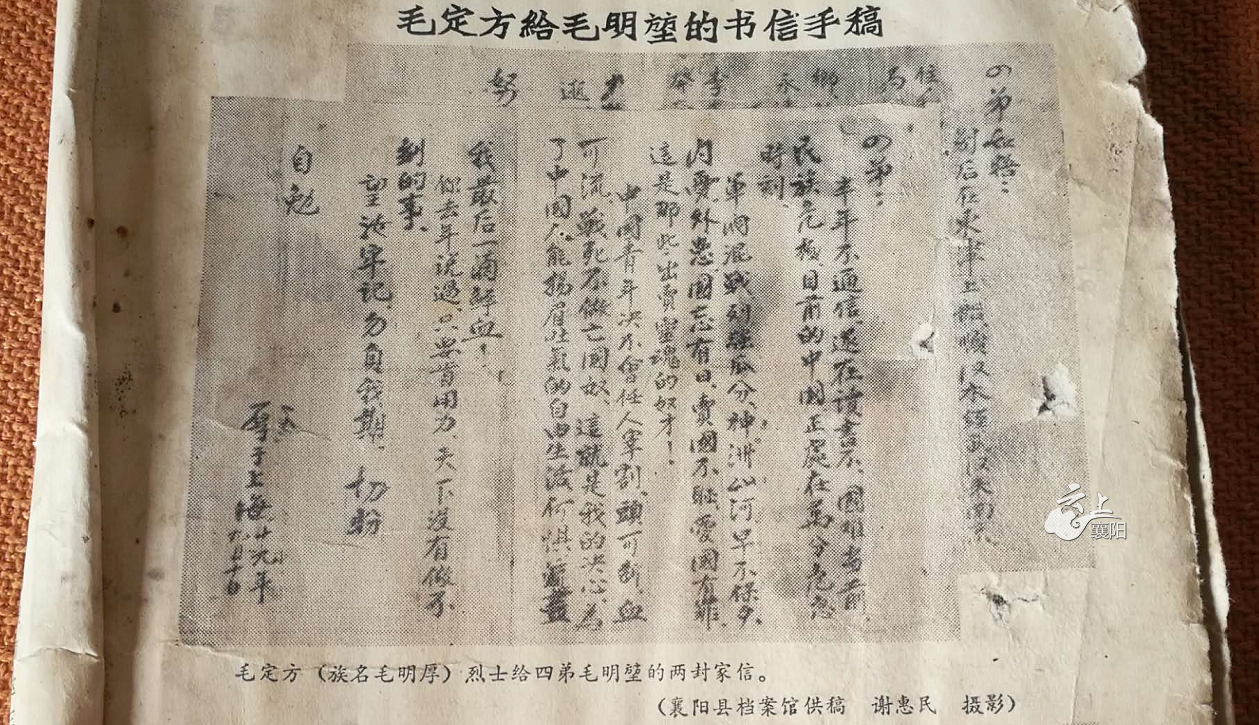 毛定方給毛明堃的书信手稿
四弟如晤：
别后在东津上船顺汉水经武汉来南京
四弟：
半年不通信，还在读书否，国难当前
民族危机目前的中国正处在万分危急
时刻
军阀混战列强瓜分，神洲山河早不保夕，
内忧外患国忘有日，卖国不耻爱国有罪，
这是那些出卖灵魂的奴才！
中国青年决不会任人宰割、头可断，血
可流，战死不做亡国奴，这就是我的决心，为
了中国人能扬眉吐气的自由生活何惧
我最后一滴鲜血！
你去年说过，只要肯用力、天下没有做不
到的事、
望汝牢记，勿负我期，切盼
自勉
厚于上海十九年
九月十日
毛定方（族名毛明厚）烈士给四弟毛明堃的两封家信。
（襄阳县档案馆供稿 谢惠民 摄影）
云上
襄阳